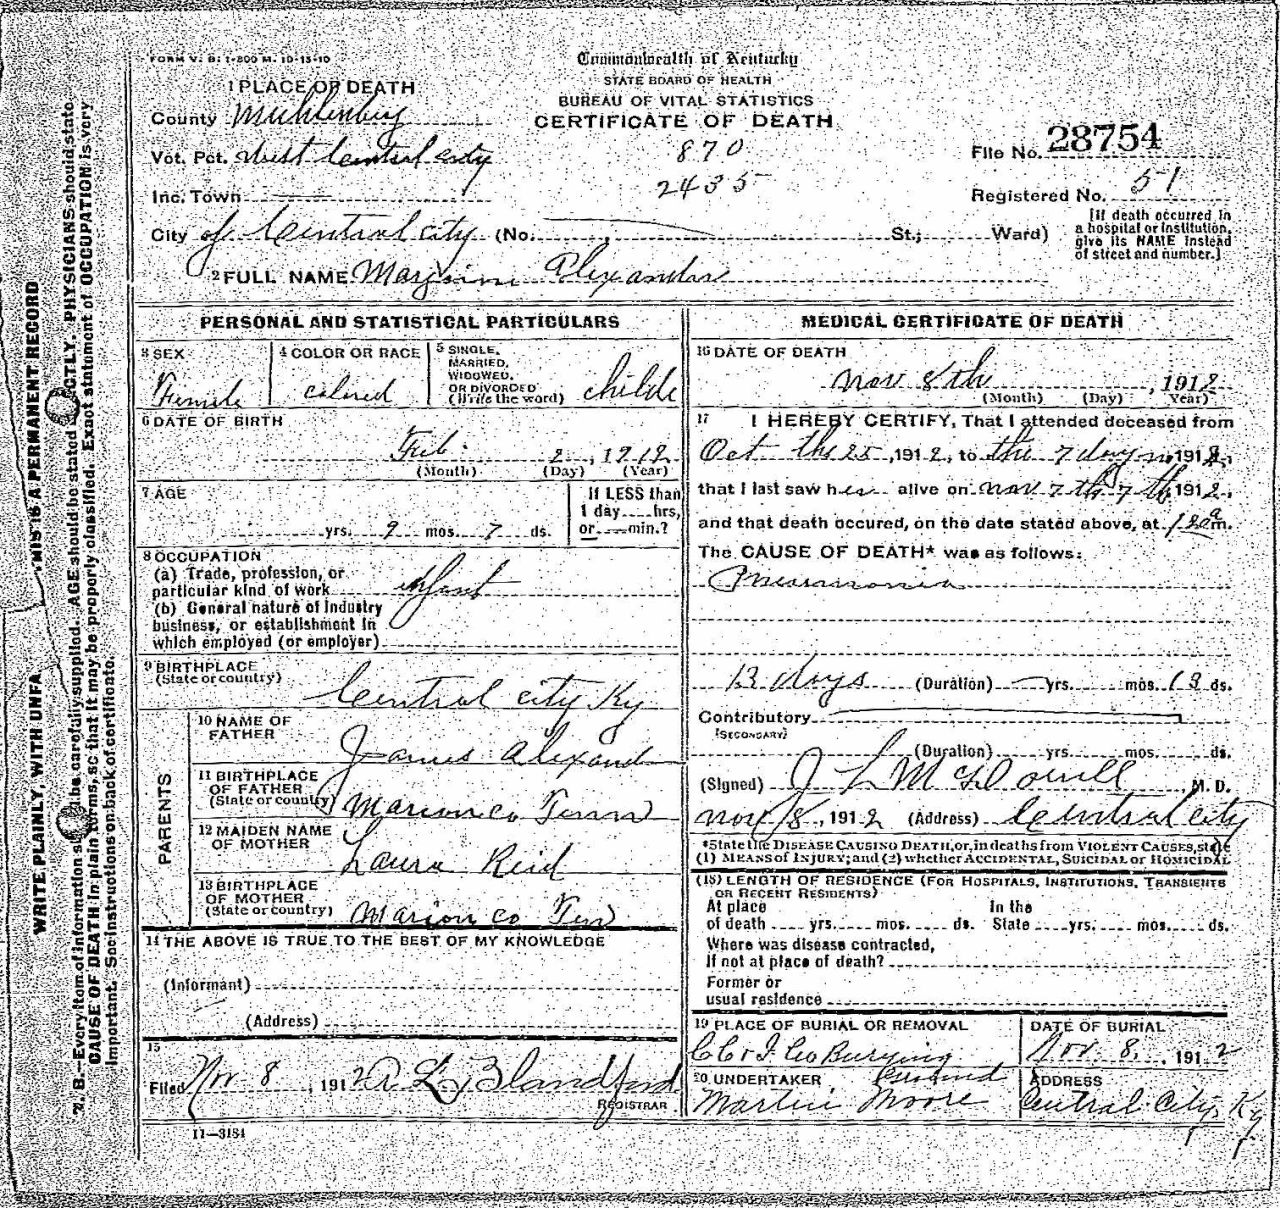 FORM V. B. 1-800 M. 10-15-10
Commonwealth of Kentucky
STATE BOARD OF HEALTH
BUREAU OF VITAL STATISTICS
CERTIFICATE OF DEATH
1 PLACE OF DEATH
County Muhlenberg
Vot. Pct. West Central City
870
File No. 28754
Inc. Town
2435
Registered No. 51
City of Central City (No. St.; Ward)
[If death occurred in
a hospital or institution,
give its NAME instead
of street and number.]
2 FULL NAME Alexander
PERSONAL AND STATISTICAL PARTICULARS
3 SEX
Female
4 COLOR OR RACE
colored
5 SINGLE,
MARRIED,
WIDOWED,
OR DIVORCED
(Write the word) childe
6 DATE OF BIRTH
Feb. 2, 1912
(Month) (Day) (Year)
7 AGE
yrs. 9 mos. 7 ds.
If LESS than
1 day hrs,
or min.?
8 OCCUPATION
(a) Trade, profession, or
particular kind of work infant
(b) General nature of Industry
business, or establishment in
which employed (or employer)
9 BIRTHPLACE
(State or country)
Central City Ky
PARENTS
10 NAME OF
FATHER
James Alexand
11 BIRTHPLACE
OF FATHER
(State or country) Marion co Tenn
12 MAIDEN NAME
OF MOTHER
Laura Reid
13 BIRTHPLACE
OF MOTHER
(State or country) Marion co Ten
14 THE ABOVE IS TRUE TO THE BEST OF MY KNOWLEDGE
(Informant)
(Address)
15
Filed Nov 8, 1912 A L Blandford
REGISTRAR
11-3184
MEDICAL CERTIFICATE OF DEATH
16 DATE OF DEATH
nov 8th, 1912
(Month) (Day) Year)
17 I HEREBY CERTIFY, That I attended deceased from
Oct the 25, 1912, to the 7 day n 1912,
that I last saw her alive on nov 7 th 7 th 1912,
and that death occured, on the date stated above, at 12 am.
The CAUSE OF DEATH* was as follows:
Pneumonia
13 days (Duration) yrs. mos. 13 ds.
Contributory
[SECONDARY]
(Duration) yrs. mos. ds.
(Signed) J L McDowell M. D.
nov 8, 1912 (Address) Central City
*State the DISEASE CAUSING DEATH, or, in deaths from VIOLENT CAUSES, state
(1) MEANS of INJURY; and (2) whether ACCIDENTAL, SUICIDAL or HOMICIDAL
(18) LENGTH OF RESIDENCE (FOR HOSPITALS, INSTITUTIONS, TRANSIENTS
OR RECENT RESIDENTS)
At place In the
of death yrs. mos. ds. State yrs. mos. ds.
Where was disease contracted,
If not at place of death?
Former or
usual residence
19 PLACE OF BURIAL OR REMOVAL
Co Burying
Ground
DATE OF BURIAL
Nov. 8, 1912
20 UNDERTAKER
Martin Moore
ADDRESS
Central City, Ky
WRITE PLAINLY, WITH UNFA THIS IS A PERMANENT RECORD
N. B.—Every item of information should be carefully supplied. AGE should be stated EXACTLY. PHYSICIANS should state
CAUSE OF DEATH in plain terms, so that it may be properly classified. Exact statement of OCCUPATION is very
important. See instructions on back of certificate.